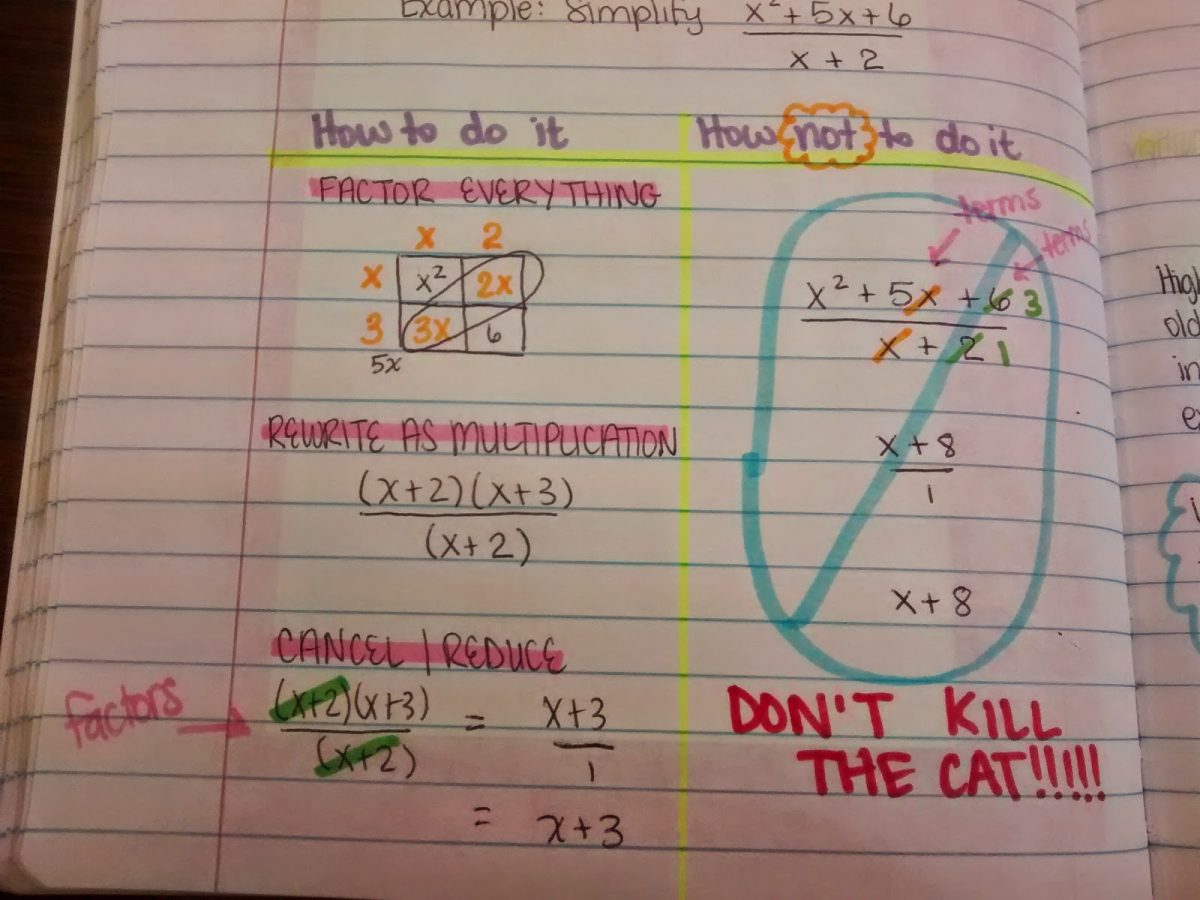 Example: Simplify x² + 5x + 6
x + 2
How to do it
FACTOR EVERYTHING
x 2
x x² 2x
3 3x 6
5x
REWRITE AS MULTIPLICATION
(x+2)(x+3)
(x+2)
CANCEL | REDUCE
factors → (x+2)(x+3) = x+3
(x+2) 1
= x+3
How not to do it
terms
terms
x² + 5x + 6 3
x + 2 1
x + 8
1
x + 8
DON'T KILL
THE CAT!!!!!
old
in